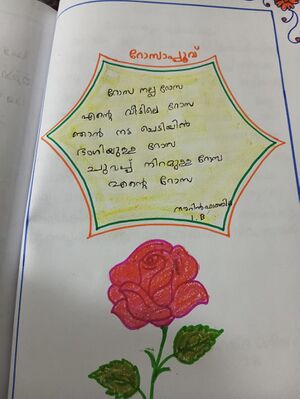 റോസാപ്പൂവ്
റോസ നല്ല റോസ
എന്റെ വീട്ടിലെ റോസ
ഞാൻ നട്ട ചെടിയിൽ
ഭംഗിയുള്ള റോസ
ചുവപ്പ് നിറമുള്ള റോസ
എന്റെ റോസ
1.B